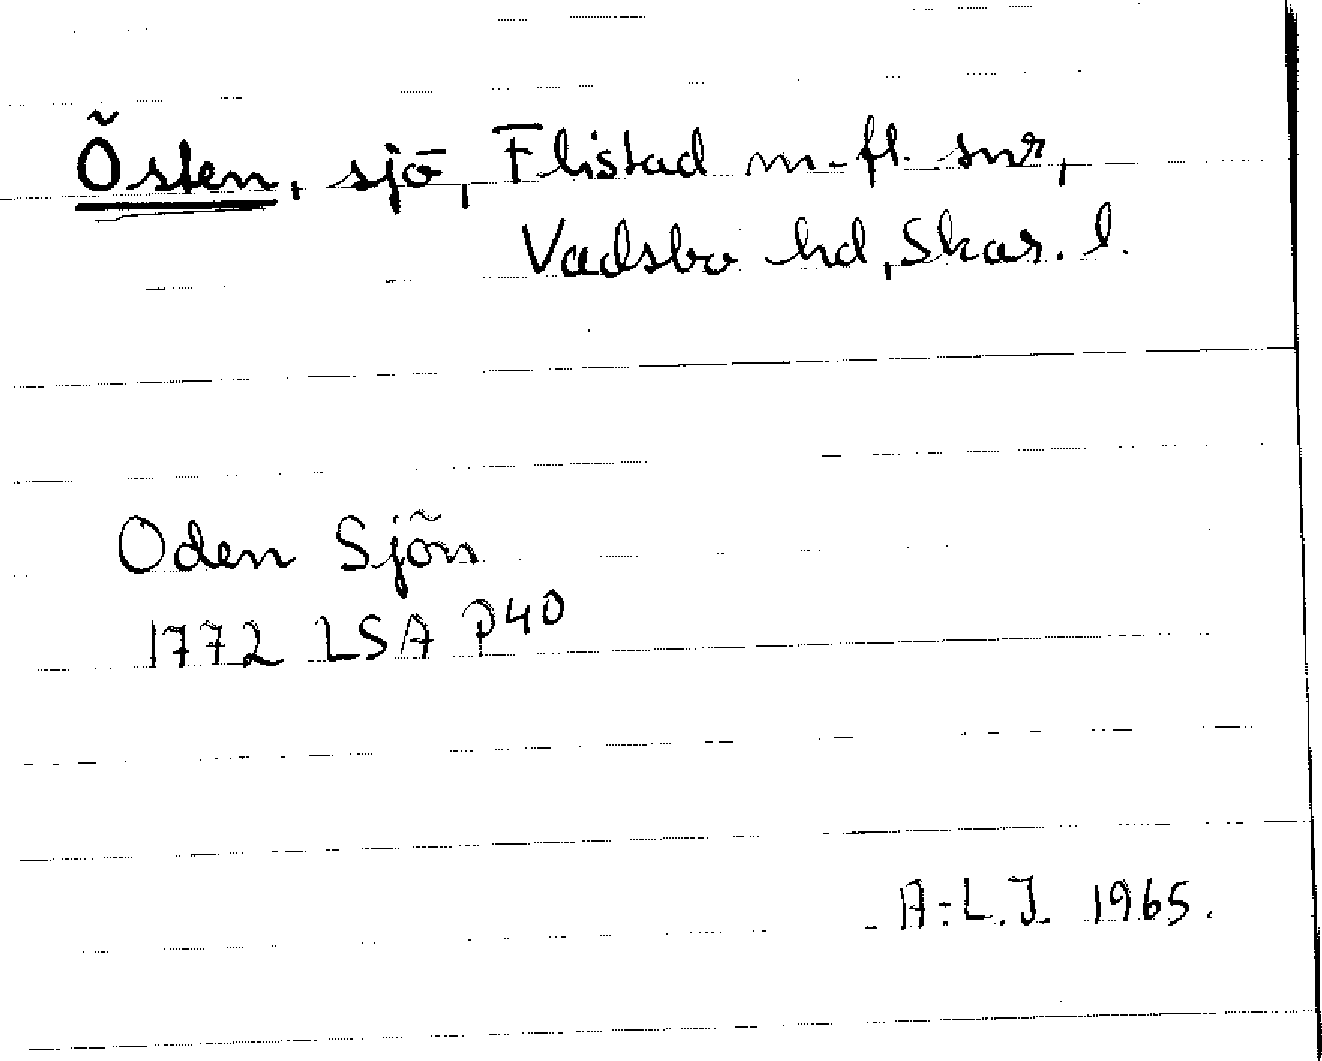 Östen, sjö, Flistad m. fl. snr,
Vadsbo hd, Skar. l.
Oden Sjön
1772 LSA P40
A-L.J. 1965.